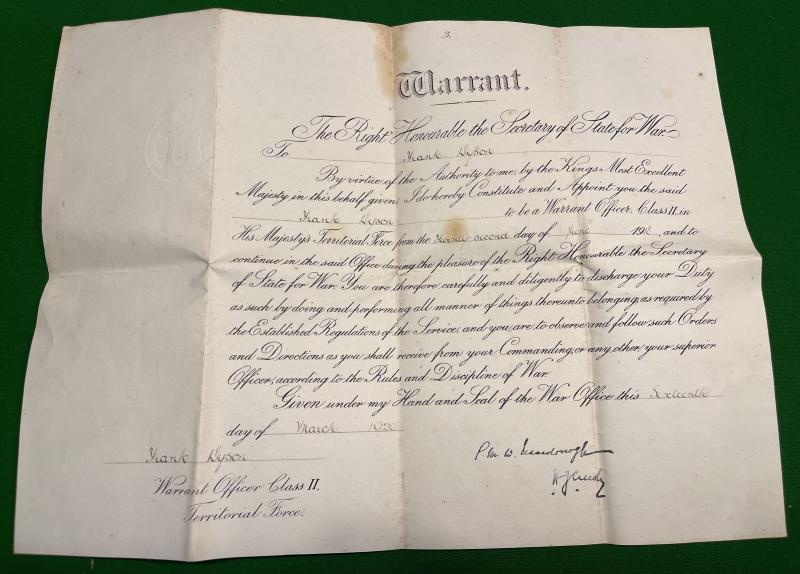 3.
Warrant.
The Right Honourable the Secretary of State for War.
To Frank Dyson
By virtue of the Authority to me, by the Kings Most Excellent
Majesty in this behalf given, I do hereby Constitute and Appoint you the said
Frank Dyson to be a Warrant Officer, Class II, in
His Majesty's Territorial Force from the twenty second day of June 191 , and to
continue in the said Office during the pleasure of the Right Honourable the Secretary
of State for War. You are therefore, carefully and diligently to discharge your Duty
as such by doing and performing all manner of things thereunto belonging, as required by
the Established Regulations of the Service, and you are to observe and follow such Orders
and Directions as you shall receive from your Commanding, or any other, your superior
Officer, according to the Rules and Discipline of War.
Given under my Hand and Seal of the War Office this Sixteenth
day of March 1920
Frank Dyson
Warrant Officer Class II,
Territorial Force.
P. M. W.
H J Creedy